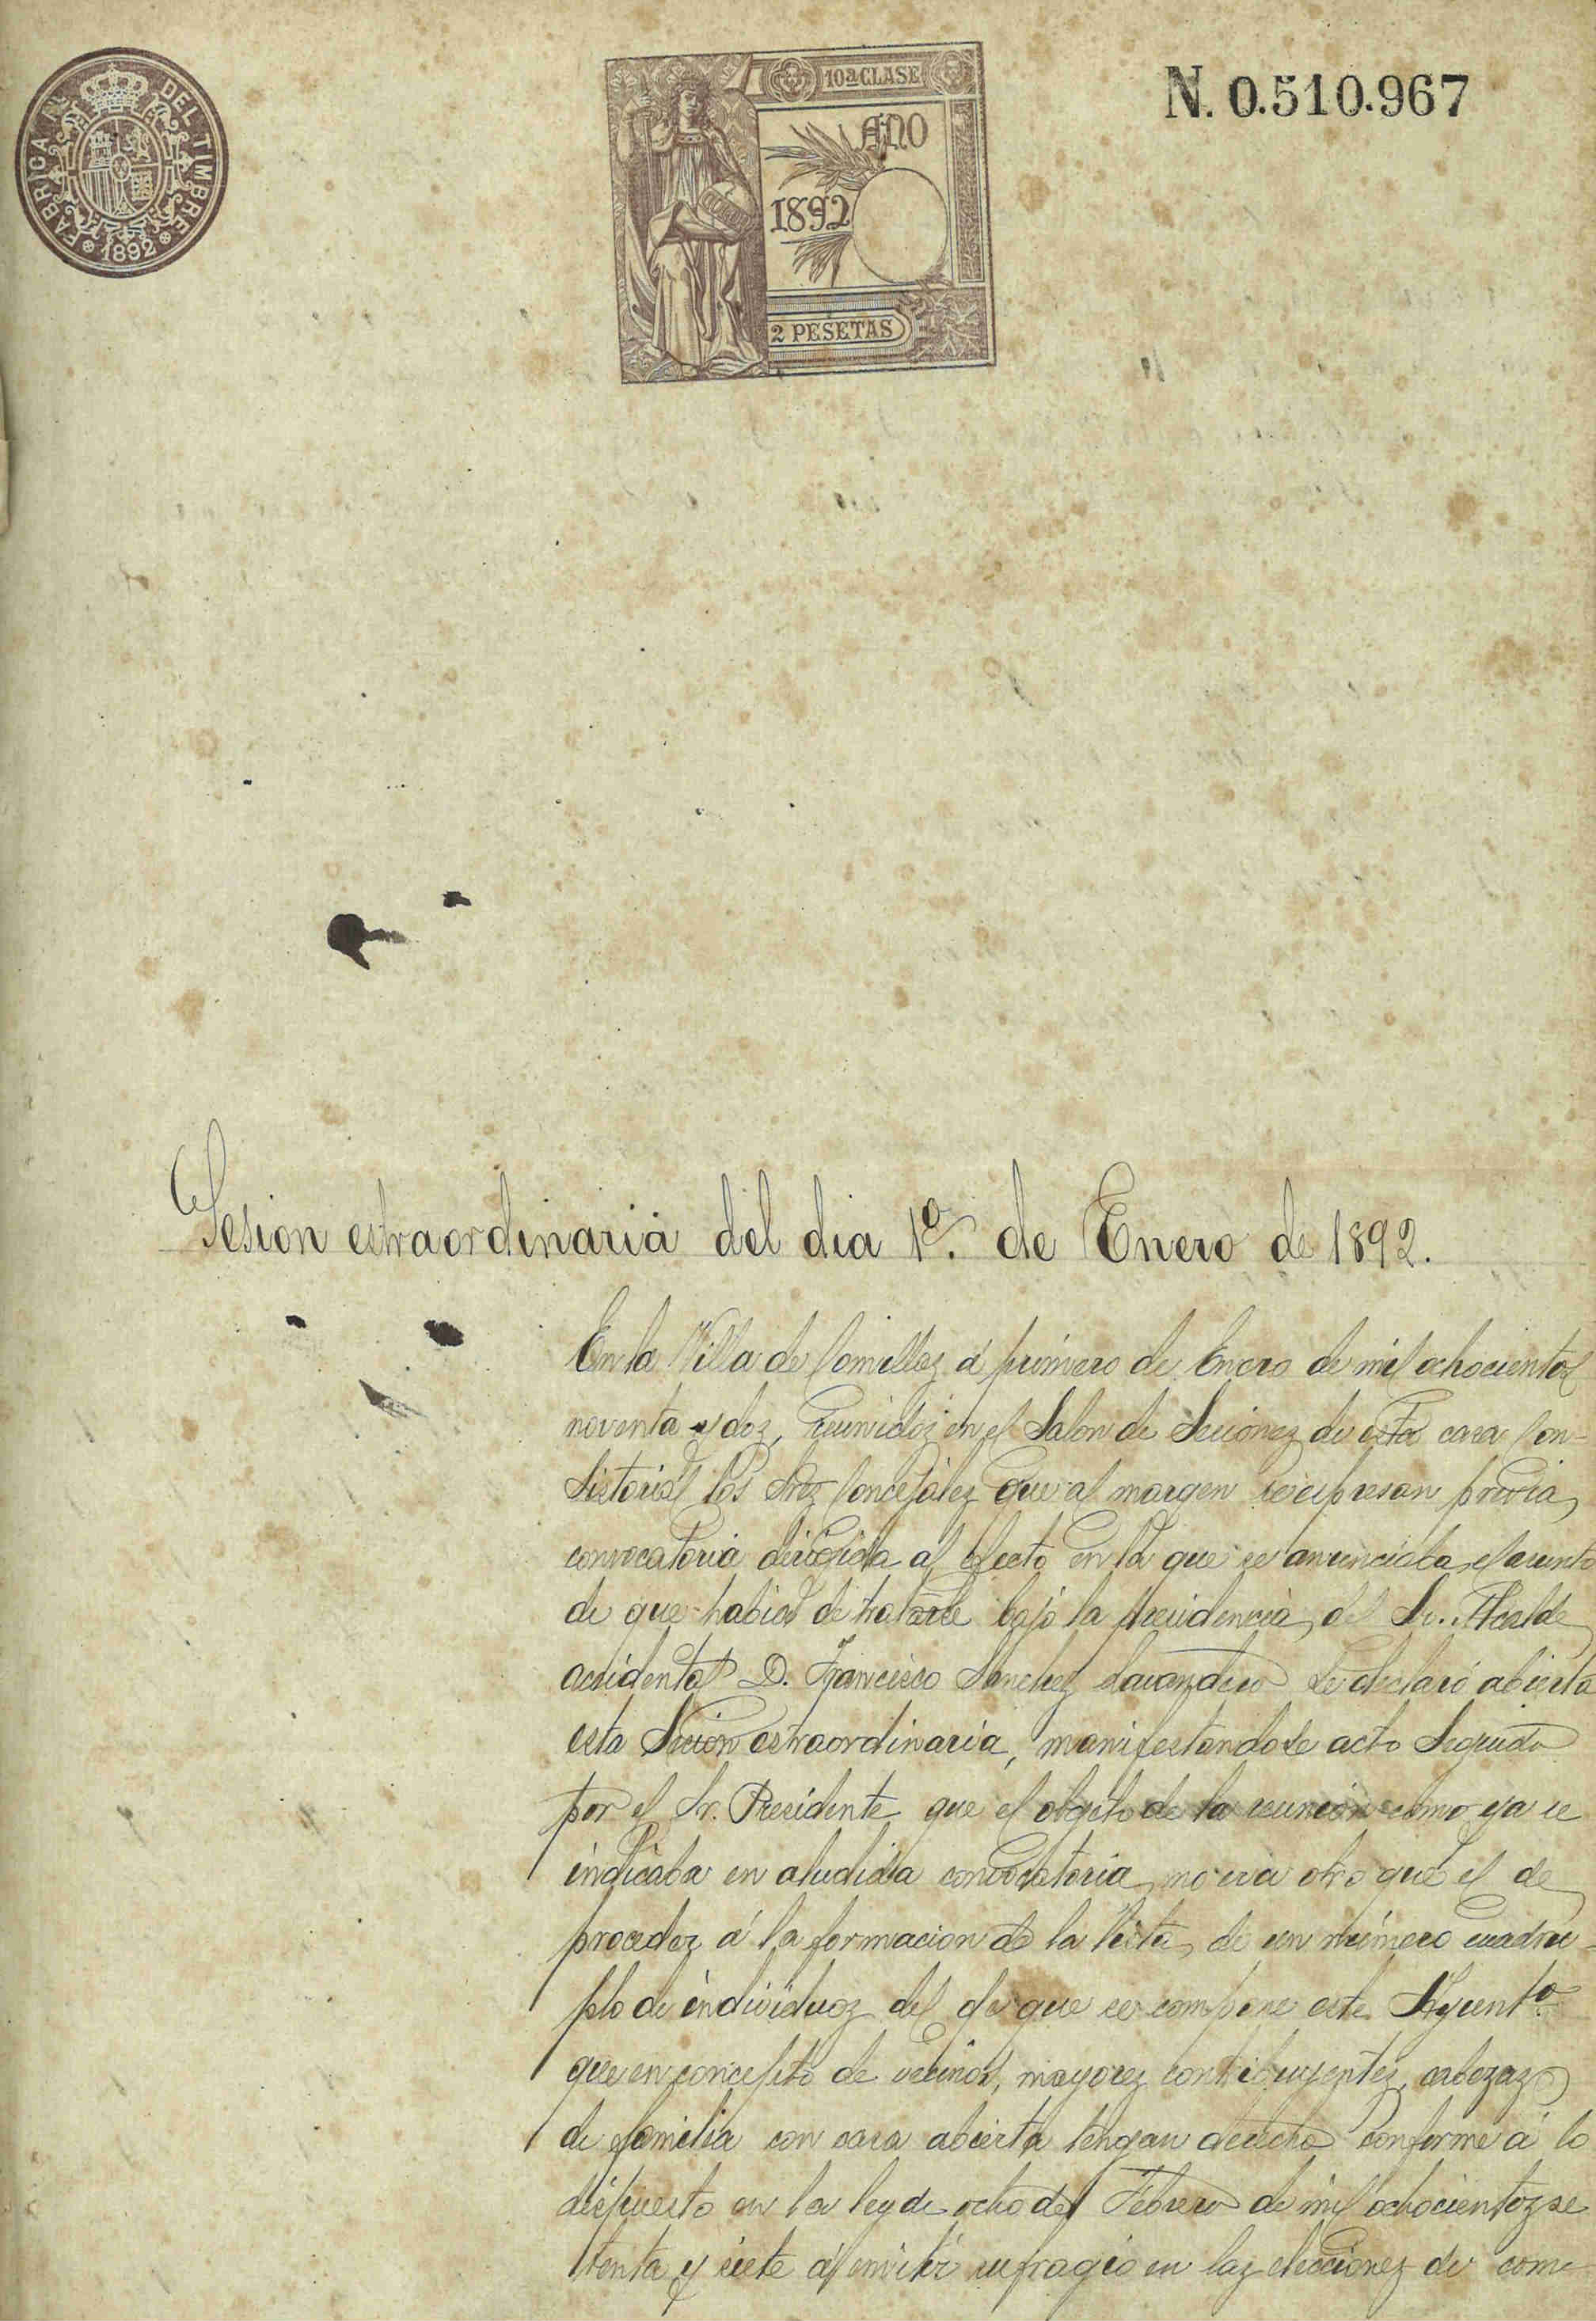 FABRICA N. DEL TIMBRE
1892
10ª CLASE
AÑO
1892
2 PESETAS
N. 0.510.967
Sesion estraordinaria del dia 1º. de Enero de 1892.
En la Villa de Comillaz á primero de Enero de mil ochocientos
noventa y doz, reunidoz en el Salon de Secionez de esta casa Con-
sistorial los Srez Concejalez que al margen se espresan previa
convocatoria dirigida al efecto en la que se anunciaba el asunto
de que habia de tratarse bajo la presidencia del Sr. Alcalde
accidental D. Francisco Sanchez Lavandero se declaró abierta
esta Secion estraordinaria, manifestandose acto Seguido
por el Sr. Presidente que el objeto de la reunion como ya se
indicaba en aludida convocatoria, no era otro que el de
proceder á la formacion de la lista, de un número cuadru-
plo de individuoz del de que se compone este Ayuntº
que en concepto de vecinos, mayorez contribuyentez, cabezaz
de familia con casa abierta tengan derecho conforme á lo
dispuesto en la ley de ocho del Febrero de mil ochocientoz se
tenta y siete á emitir sufragio en laz eleccionez de com-